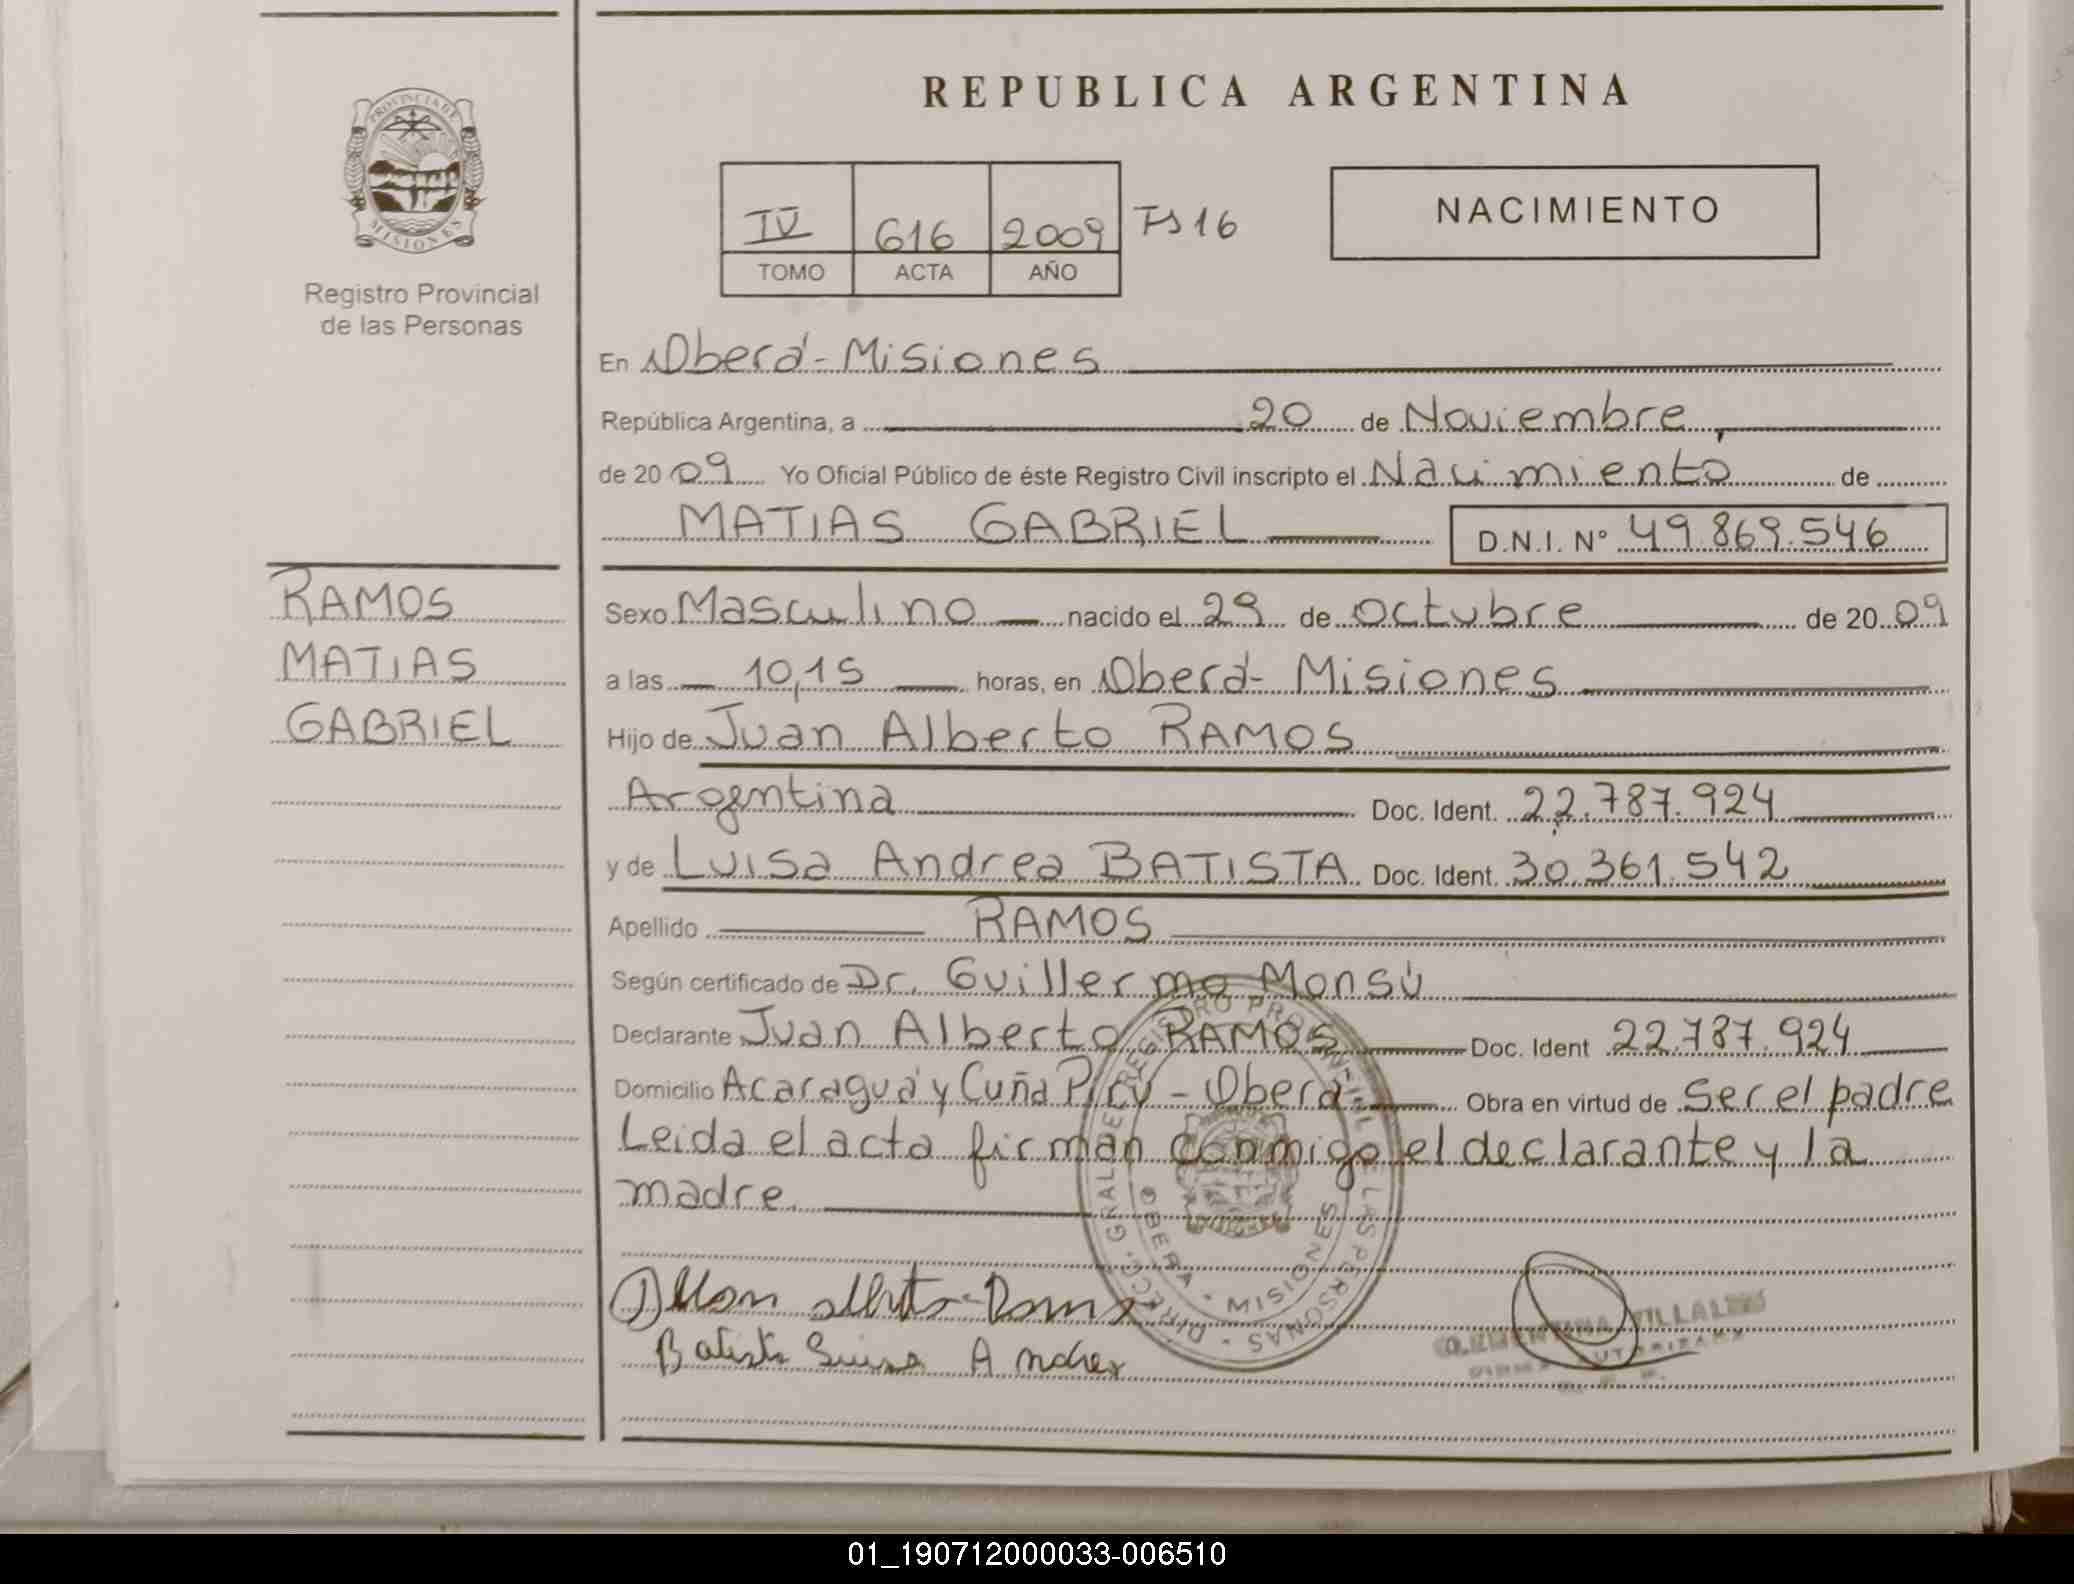 REPUBLICA ARGENTINA
PROVINCIA DE
MISIONES
Registro Provincial
de las Personas
IV 616 2009 Fs 16
TOMO ACTA AÑO
NACIMIENTO
En Oberá - Misiones
República Argentina, a 20 de Noviembre,
de 2009 Yo Oficial Público de éste Registro Civil inscripto el Nacimiento de
MATIAS GABRIEL D.N.I. Nº 49.869.546
RAMOS
MATIAS
GABRIEL
Sexo Masculino nacido el 29 de Octubre de 2009
a las 10,15 horas, en Oberá - Misiones
Hijo de Juan Alberto RAMOS
Argentina Doc. Ident. 22.787.924
y de Luisa Andrea BATISTA Doc. Ident. 30.361.542
Apellido RAMOS
Según certificado de Dr. Guillermo Monsú
Declarante Juan Alberto RAMOS Doc. Ident 22.787.924
Domicilio Acaraguá y Cuña Pirú - Oberá Obra en virtud de Ser el padre
Leida el acta firman conmigo el declarante y la
madre.
DIRECC. GRAL. DEL REGISTRO PROVINCIAL DE LAS PERSONAS
OBERA - MISIONES
Batista Luisa Andrea
01_190712000033-006510